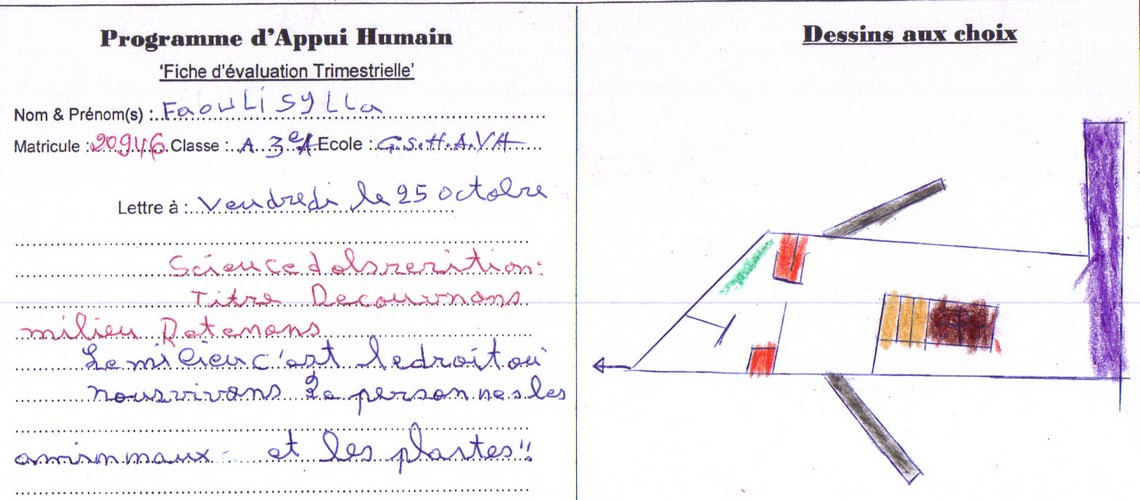 Programme d'Appui Humain
'Fiche d'évaluation Trimestrielle'
Nom & Prénom(s) : FaouLi SyLLa
Matricule : 20946 Classe : A 3e A Ecole : G.S.H.A.VA
Lettre à : Vendredi le 25 octobre
Science d'olsrerition:
Titre Decouvnons
milieu Retenons
Le milieu c'est ledroit où
nousvivons Le personnes les
amimmaux et les plastes!!
Dessins aux choix